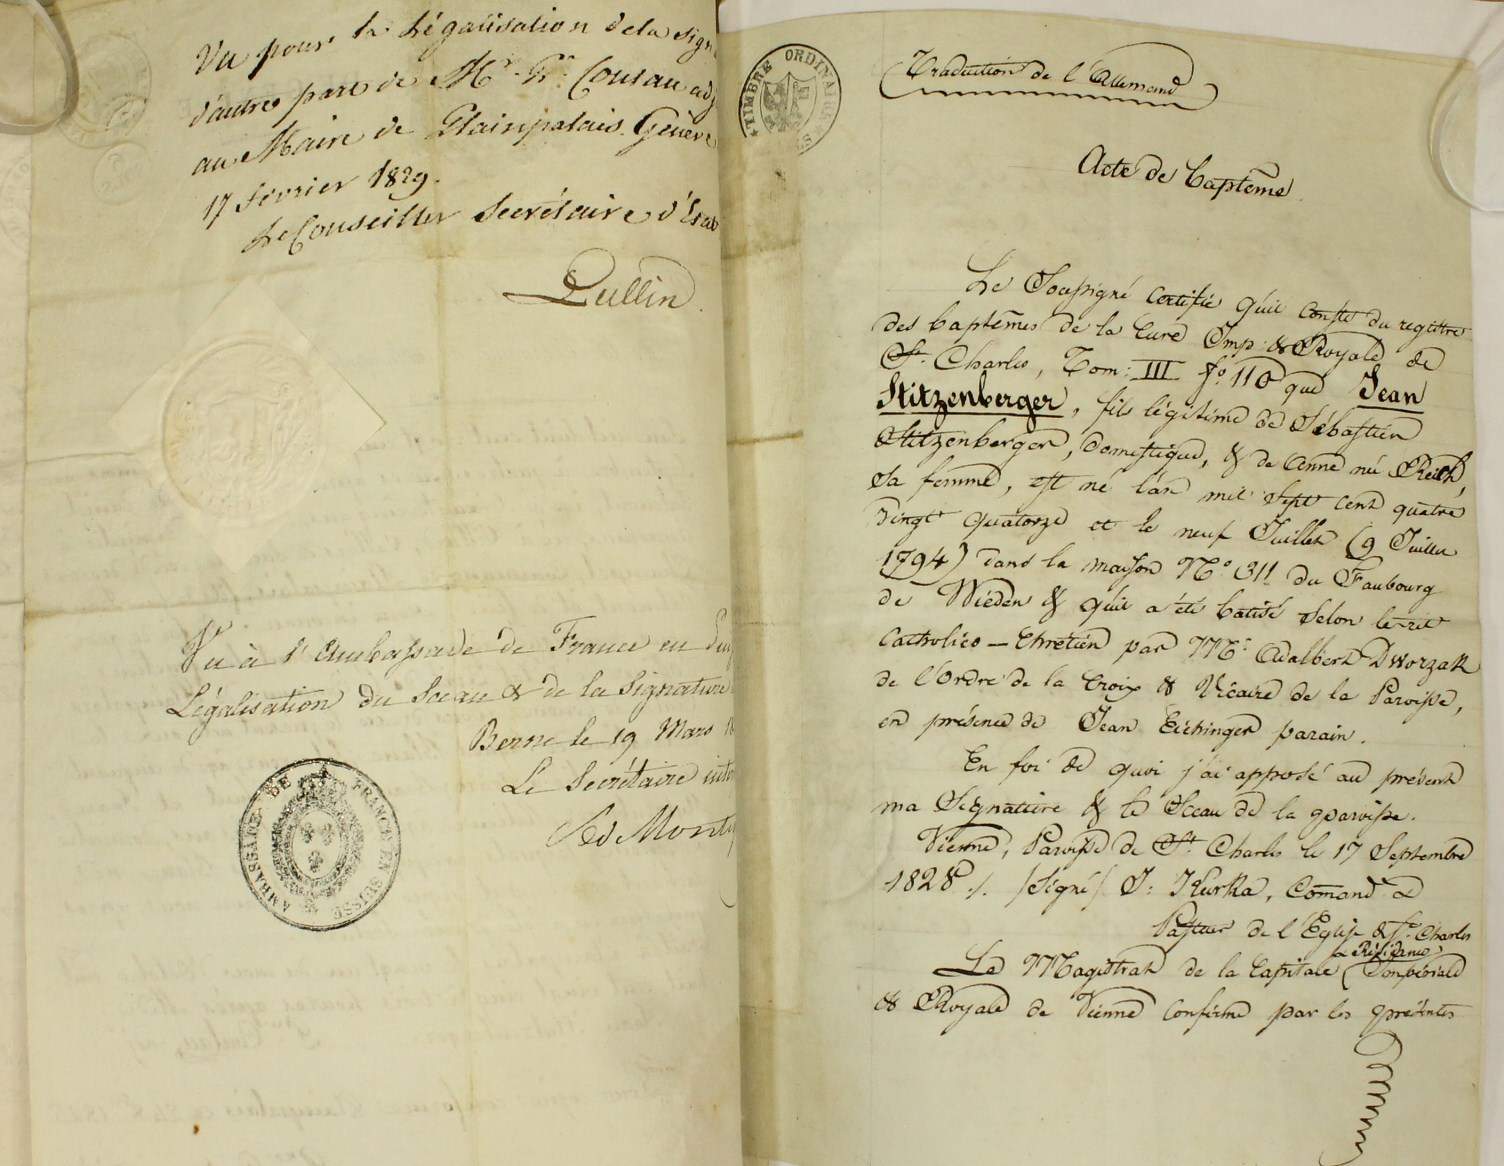 Vu pour la Légalisation de la sign
d'autre part de Mr. Pr. Cousau adj
au Maire de Plainpalais. Genève
17 février 1829.
Le Conseiller Secrétaire d'État
Lullin
Vu à l'Ambassade de France en Sui
Légalisation du Sceau & de la Signature
Berne le 19 Mars
Le Secrétaire
AMBASSADE DE FRANCE EN SUISSE
TIMBRE ORDINAIRE
Traduction de l'Allemand
Acte de Baptême
Le Soussigné certifie qu'il conste du registre
des baptêmes de la Cure Imp: & Royale de
St. Charles, Tom: III fo. 110 que Jean
Stitzenberger, fils légitime de Sébastien
Stitzenberger, domestique, & de Anne né Reich,
sa femme, est né l'an mil sept cent quatre
vingt quatorze et le neuf Juillet (9 Juillet
1794) dans la maison No. 311 du Faubourg
de Wieden & qu'il a été batisé selon le rit
Catholico-Chretien par Mr. Adalbert Dworzak
de l'Ordre de la Croix & Vicaire de la Paroisse,
en présence de Jean Eichinger parain.
En foi de quoi j'ai apposé au présent
ma Signature & le Sceau de la paroisse.
Vienne, Paroisse de St. Charles le 17 Septembre
1828 ./. /signé/ J: Kurka, Comand &
Pasteur de l'Eglise de St. Charles
Le Magistrat de la Capitale & Résidence Impériale
& Royale de Vienne confirme par les présentes